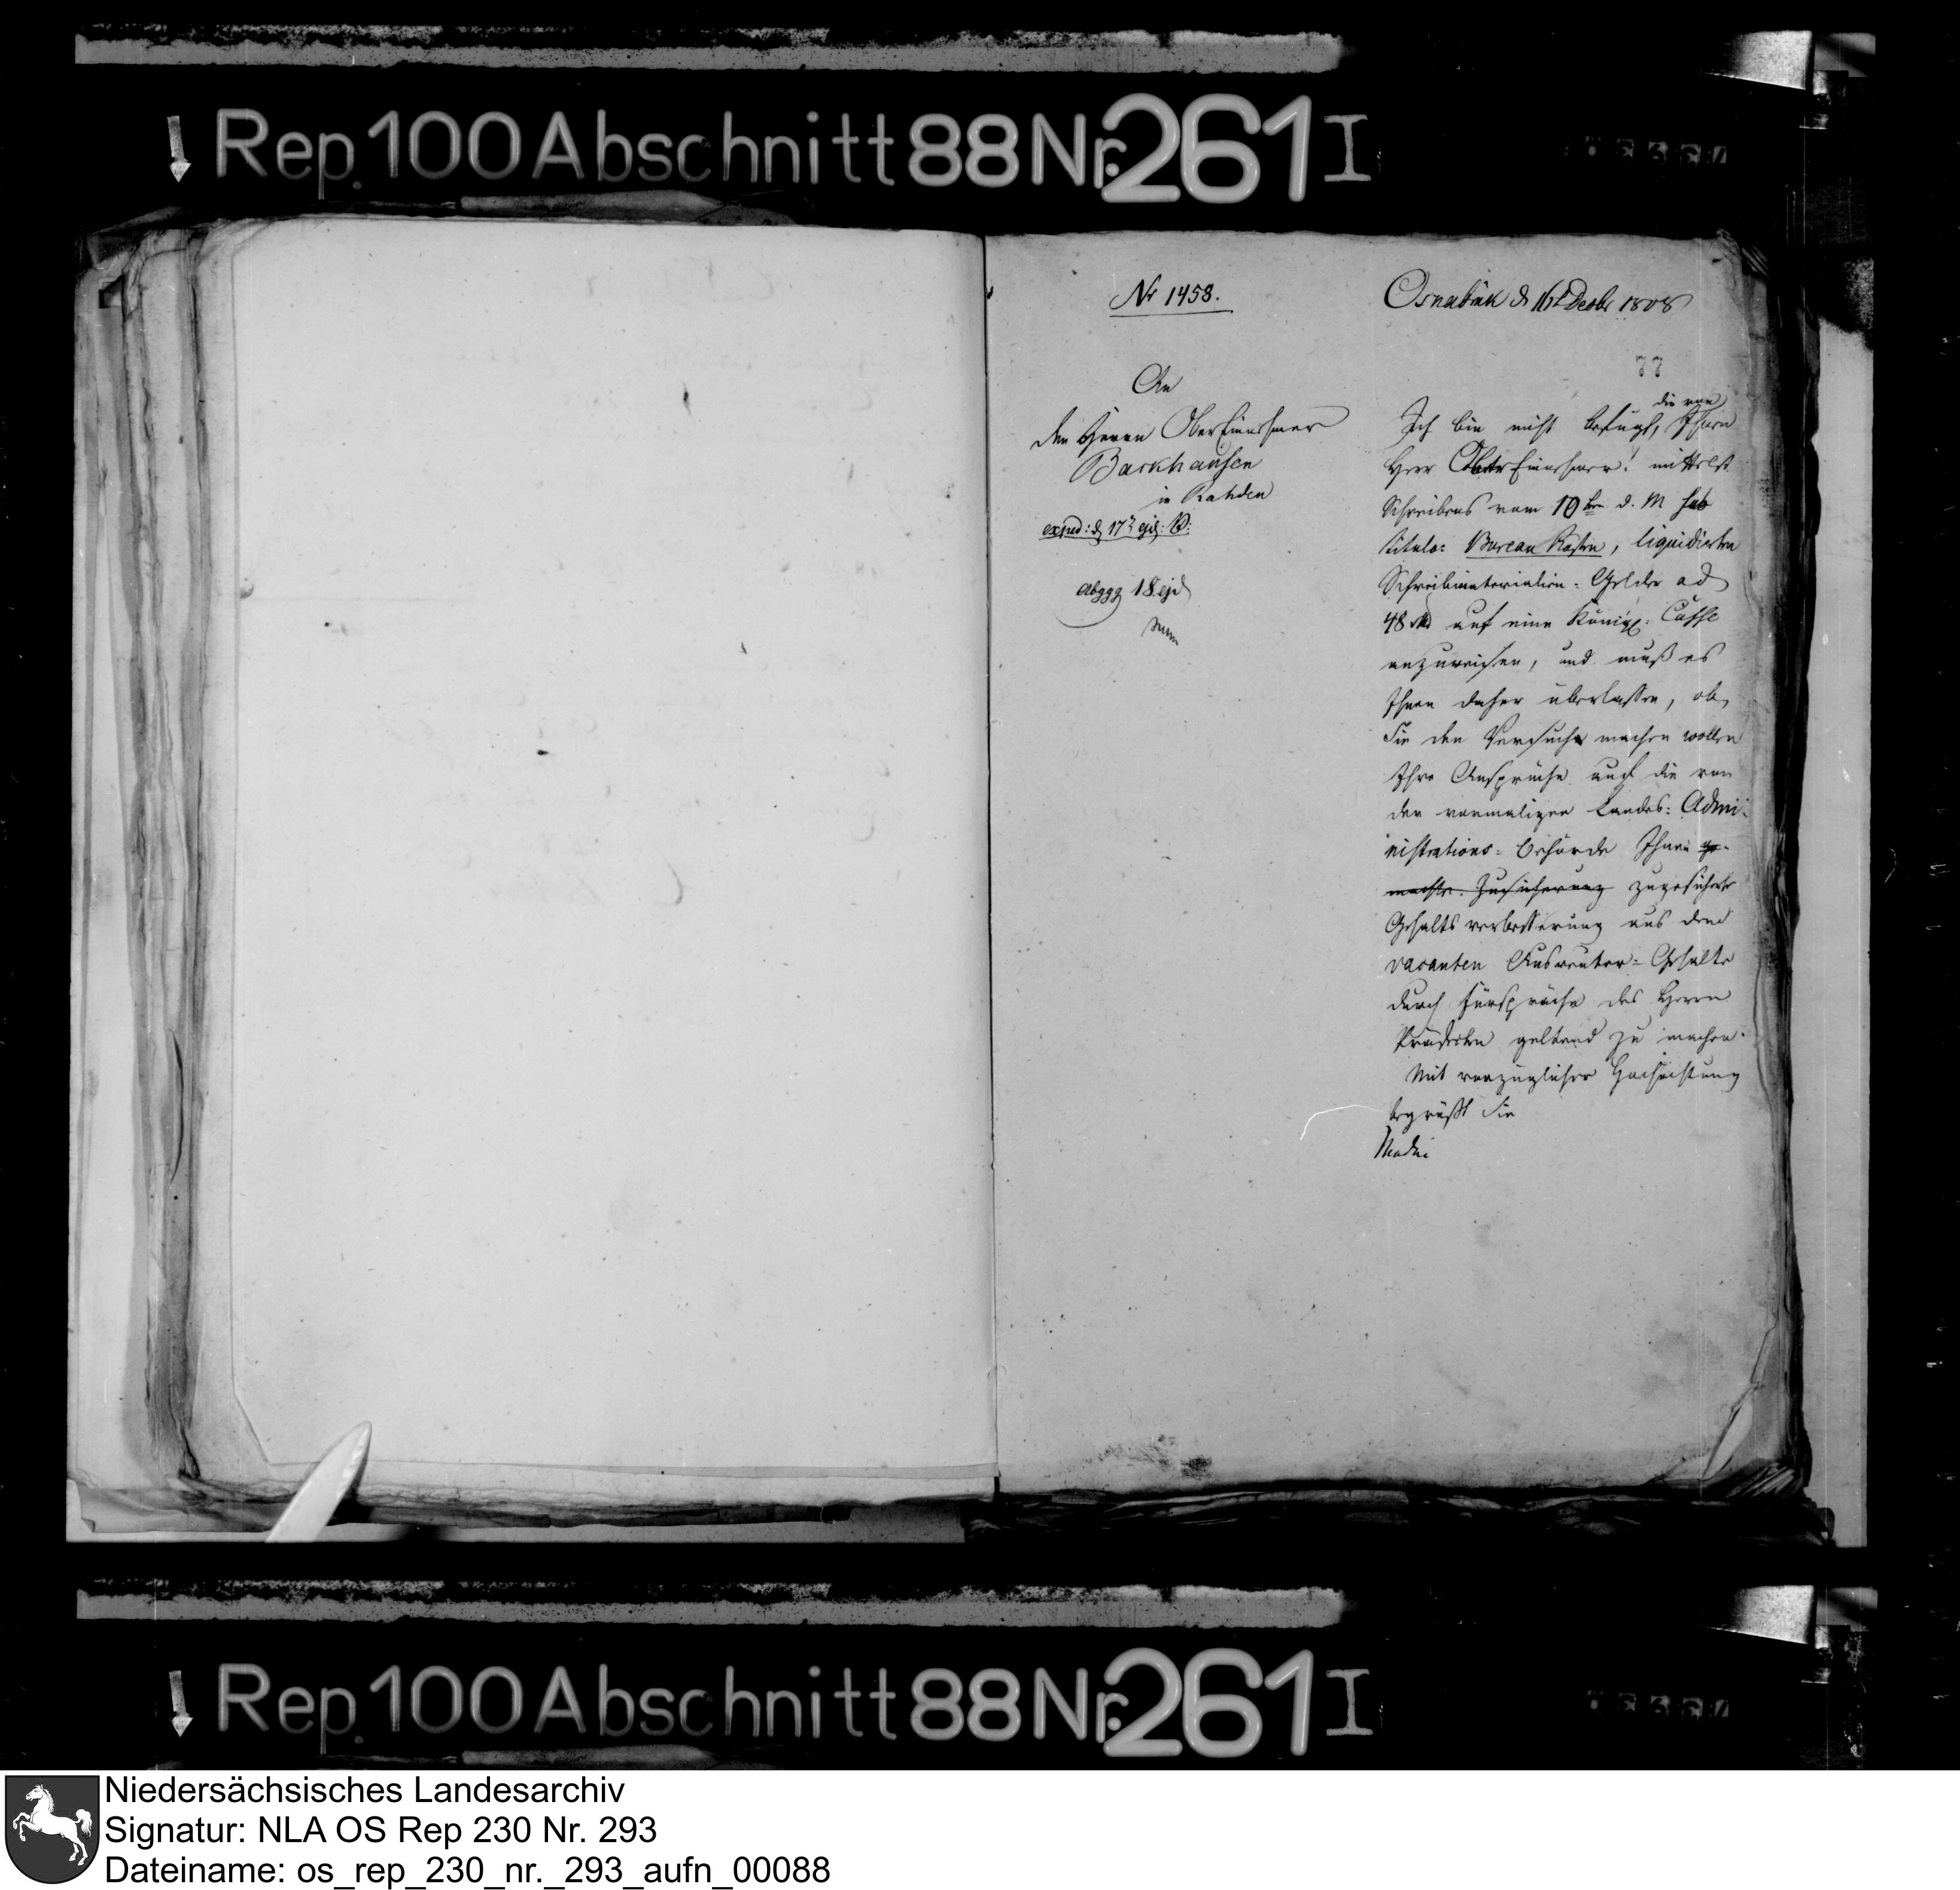 Rep. 100 Abschnitt 88 Nr. 261 I
Nr 1458.
Osnabrück d 16t Decbr 1808
77
An
den Herrn OberEinnehmer
Barkhausen
in Rahden
exped: d 17 ejd:
abggg 18. ejd
die von
Ich bin nicht befugt, Ihnen
Herr Ober Einnehmer! mittelst
Schreibens vom 10ten d. M sub
titulo: Bureau Kosten, liquidirten
Schreibmaterialien-Gelder ad
48 auf eine Königl: Casse
anzuweisen, und muß es
Ihnen daher überlassen, ob
Sie den Versuch machen wollen
Ihre Ansprüche auf die von
der vormaligen Landes-Admi-
nistrations-Behörde Ihnen ge-
machte Zusicherung zugesicherte
Gehaltsverbesserung aus dem
vacanten Ausreuter-Gehalte
durch Fürsprache des Herrn
Präfecten geltend zu machen.
Mit vorzüglicher Hochachtung
begrüßt Sie
Rep. 100 Abschnitt 88 Nr. 261 I
Niedersächsisches Landesarchiv
Signatur: NLA OS Rep 230 Nr. 293
Dateiname: os_rep_230_nr._293_aufn_00088